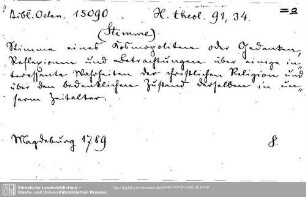 Bibl. Oden. 15090 H. theol. 91, 34. =2
(Stemme)
Stimme eines Kosmopoliten oder Gedanken,
Reflexionen und Betrachtungen über einige in-
teressante Wahrheiten der christlichen Religion und
über den bedenklichen Zustand derselben in un-
serm Zeitalter.
Magdeburg 1789 8.
Sächsische Landesbibliothek -
Staats- und Universitätsbibliothek Dresden